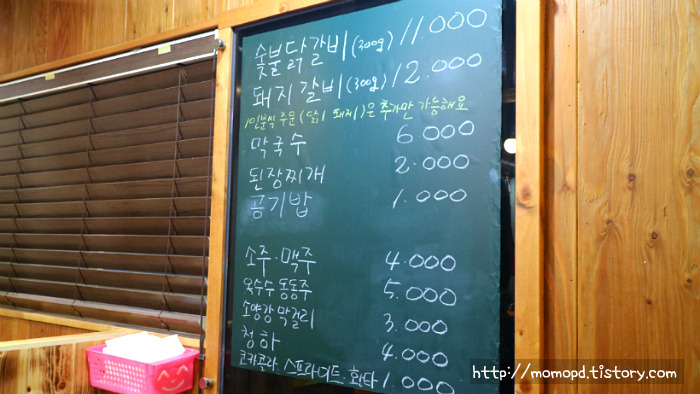 숯불닭갈비(300g) 11.000
돼지갈비(300g) 12.000
1인분씩 주문(닭1 돼지1)은 추가만 가능해요
막국수 6.000
된장찌개 2.000
공기밥 1.000
소주·맥주 4.000
옥수수동동주 5.000
소양강막걸리 3.000
청하 4.000
코카콜라·스프라이트·환타 1.000
http://momopd.tistory.com